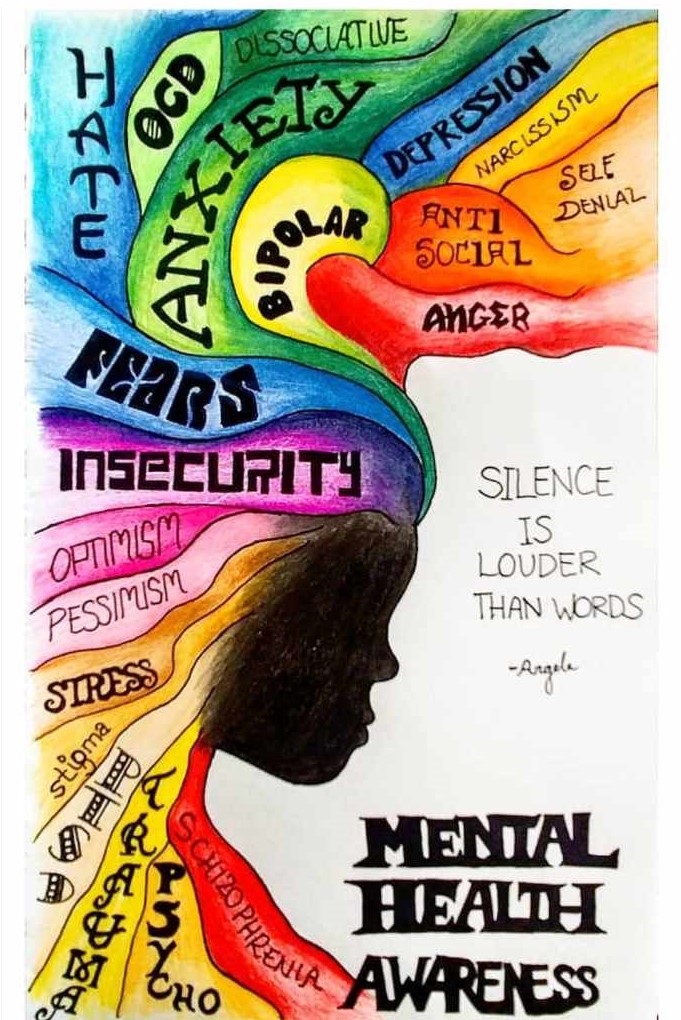 HATE
OCD
DISSOCIATIVE
ANXIETY
DEPRESSION
NARCISSISM
SELF
DENIAL
BIPOLAR
ANTI
SOCIAL
ANGER
FEARS
INSECURITY
OPTIMISM
PESSIMISM
STRESS
stigma
PTSD
TRAUMA
PSYCHO
SCHIZOPHRENIA
SILENCE
IS
LOUDER
THAN WORDS
-Angela
MENTAL
HEALTH
AWARENESS